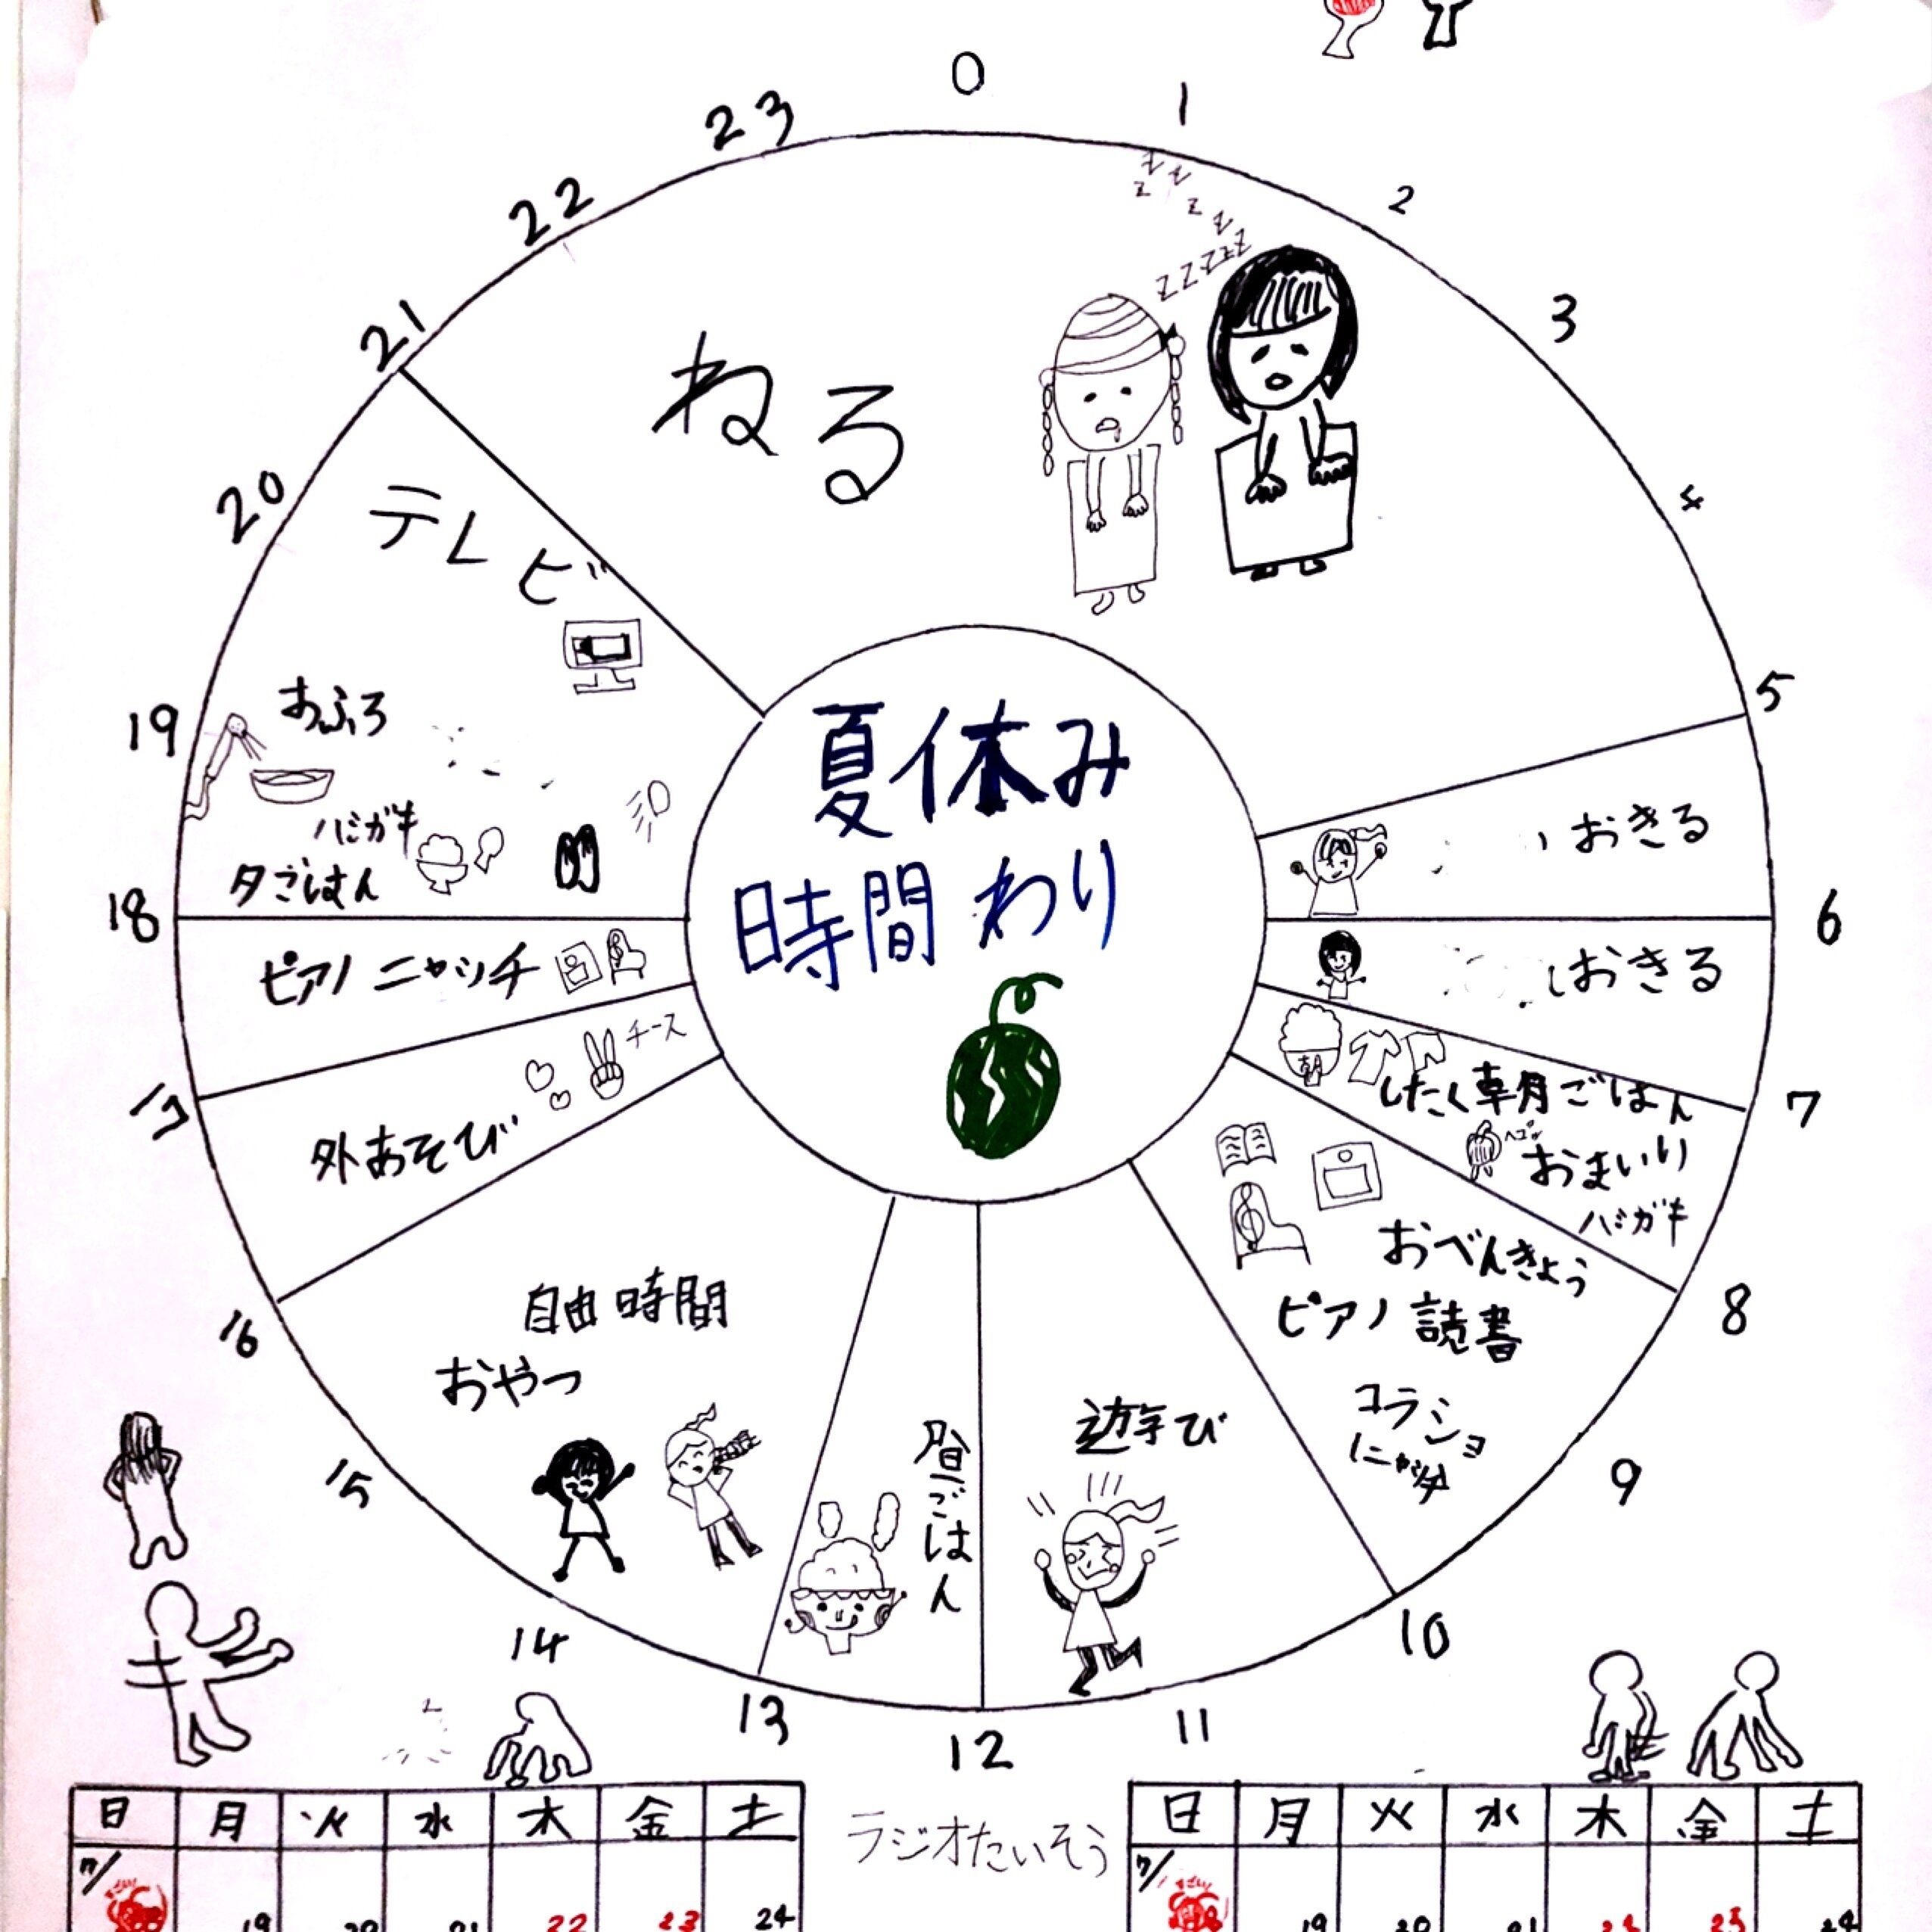 0
1
2
3
4
5
6
7
8
9
10
11
12
13
14
15
16
17
18
19
20
21
22
23
夏休み
時間わり
ねる
zzz
おきる
おきる
したく朝ごはん
おまいり
ハミガキ
おべんきょう
ピアノ 読書
コラショ
ニャッチ
遊び
昼ごはん
自由時間
おやつ
外あそび
チース
ピアノ ニャッチ
夕ごはん
ハミガキ
おふろ
テレビ
ラジオたいそう
日 月 火 水 木 金 土
7/ 19 20 21 22 23 24
日 月 火 水 木 金 土
7/ 19 20 21 22 23 24